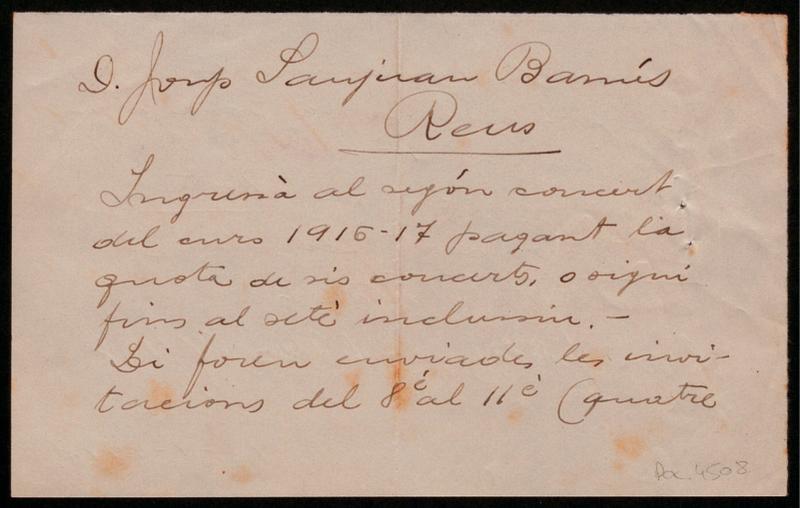 D. Josep Sanjuan Barnés
Reus
Ingressà al segón concert
del curs 1916-17 pagant la
quota de sis concerts, o sigui
fins al setè inclussiu. —
Li foren enviades les invi-
tacions del 8è al 11è (quatre
Doc. 4508